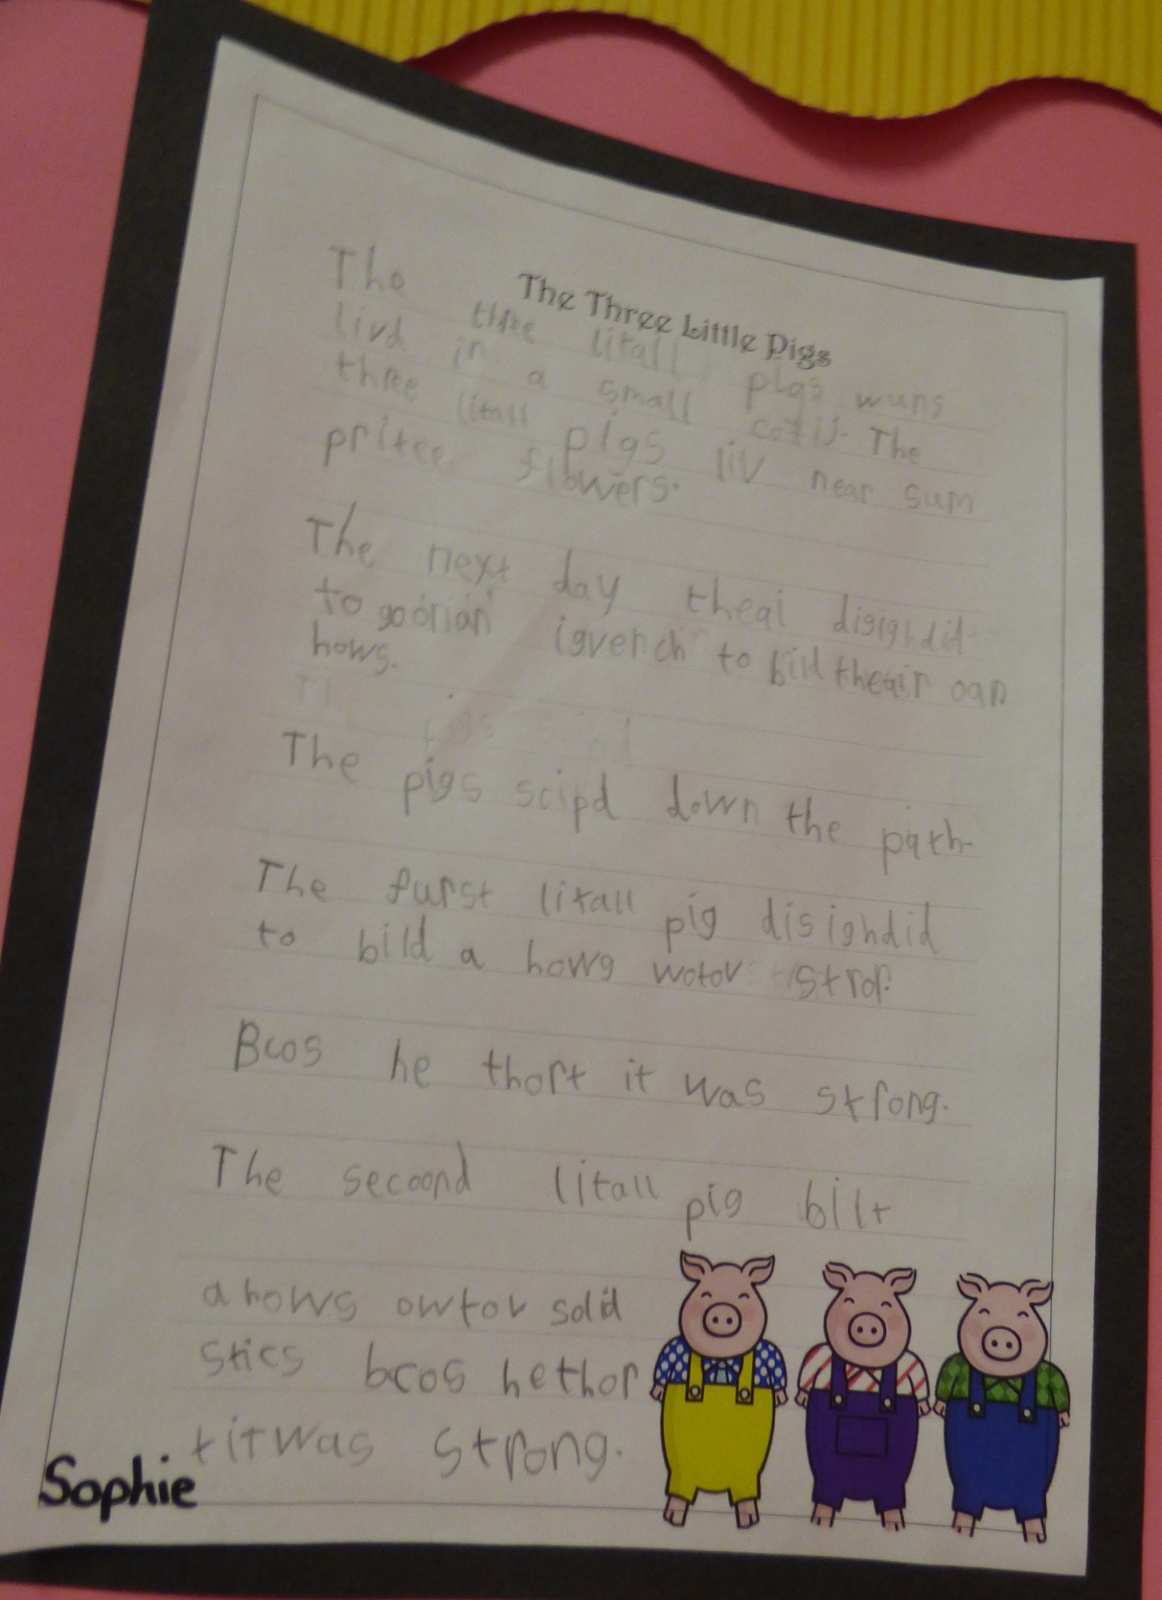 The Three Little Pigs
The three litall pigs wuns
livd in a small cotij. The
three litall pigs liv near sum
pritee flowers.
The next day theai disighdid
to go on an to bild theair oan
hows.
The pigs scipd down the path.
The furst litall pig disighdid
to bild a hows wotov stror.
Bcos he thort it was strong.
The secoond litall pig bilt
a hows owtov solid
stics bcos he thor
t it was strong.
Sophie